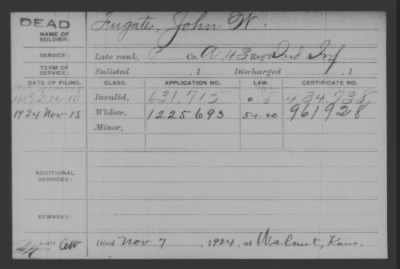 DEAD
NAME OF SOLDIER: Fugate, John W.
SERVICE: Late rank, P Co. A 43 Reg't Ind Inf
TERM OF SERVICE: Enlisted , 1 Discharged , 1
DATE OF FILING. CLASS. APPLICATION NO. LAW. CERTIFICATE NO.
Invalid, 631.715 434.738
1924 Nov-15 Widow, 1225693 5-1-20 961928
Minor,
ADDITIONAL SERVICES:
REMARKS:
Died Nov. 7, 1924, at Walnut, Kans.